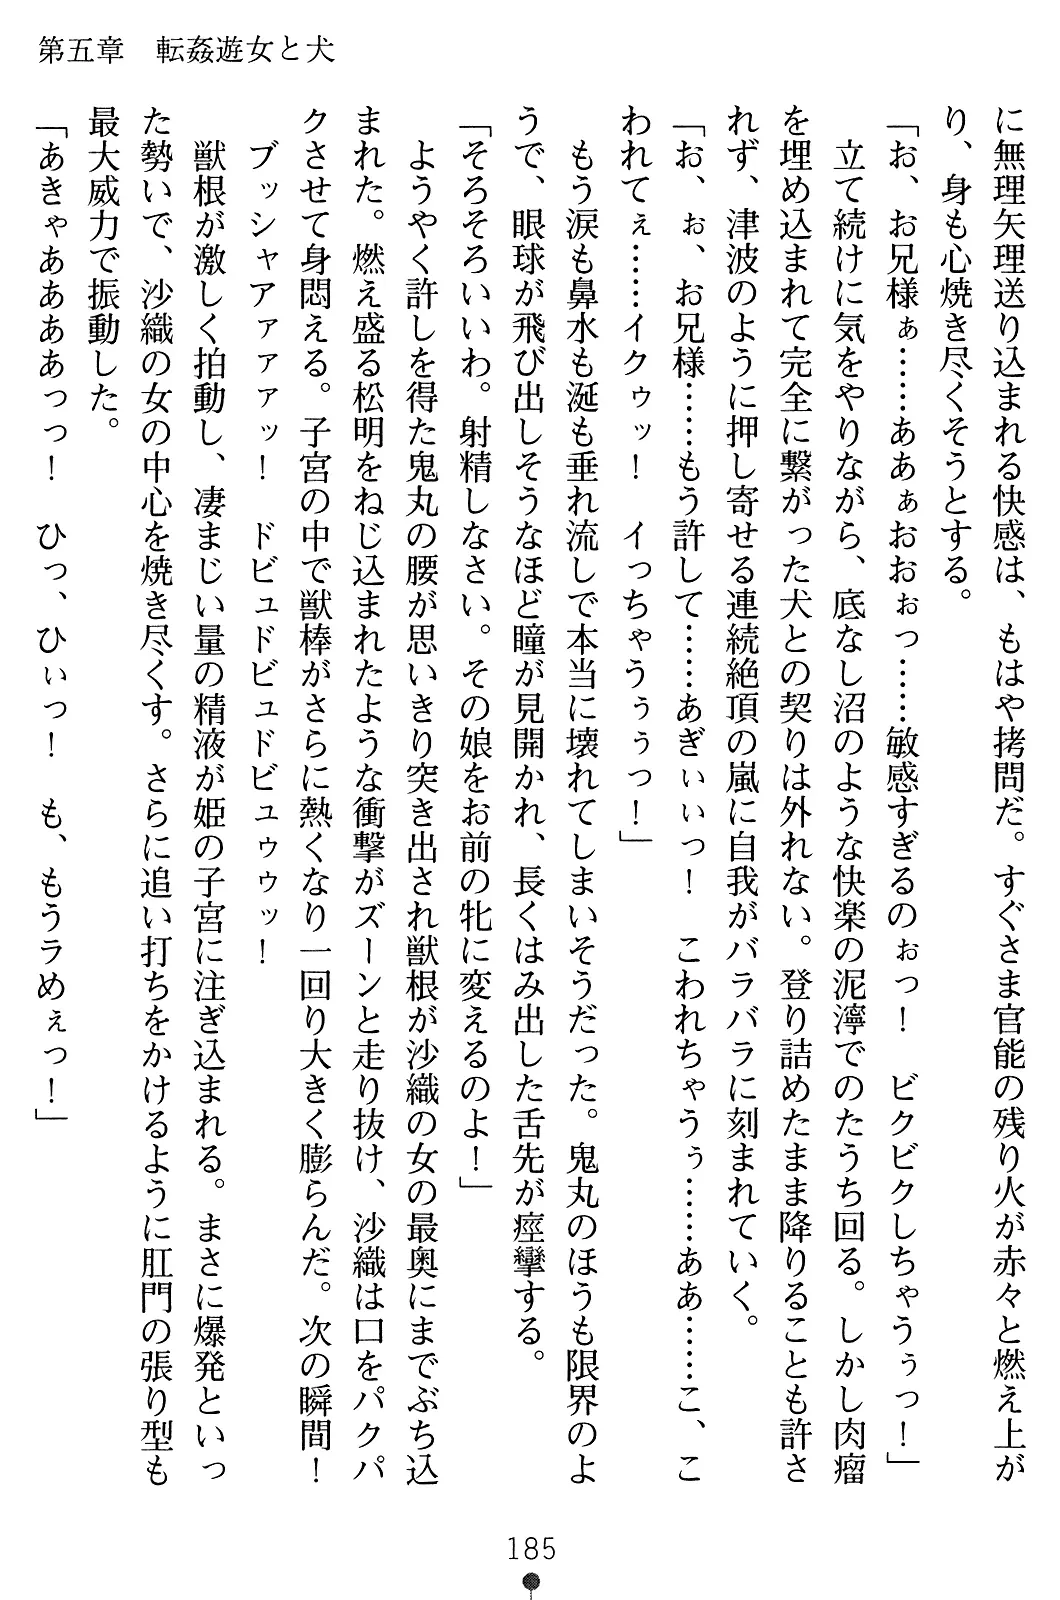 第五章　転姦遊女と犬
に無理矢理送り込まれる快感は、もはや拷問だ。すぐさま官能の残り火が赤々と燃え上が
り、身も心焼き尽くそうとする。
「お、お兄様ぁ……ああぁおおぉっ……敏感すぎるのぉっ！　ビクビクしちゃうぅっ！」
立て続けに気をやりながら、底なし沼のような快楽の泥濘でのたうち回る。しかし肉瘤
を埋め込まれて完全に繋がった犬との契りは外れない。登り詰めたまま降りることも許さ
れず、津波のように押し寄せる連続絶頂の嵐に自我がバラバラに刻まれていく。
「お、ぉ、お兄様……もう許して……あぎぃぃっ！　こわれちゃうぅ……ああ……こ、こ
われてぇ……イクゥッ！　イっちゃうぅぅっ！」
もう涙も鼻水も涎も垂れ流しで本当に壊れてしまいそうだった。鬼丸のほうも限界のよ
うで、眼球が飛び出しそうなほど瞳が見開かれ、長くはみ出した舌先が痙攣する。
「そろそろいいわ。射精しなさい。その娘をお前の牝に変えるのよ！」
ようやく許しを得た鬼丸の腰が思いきり突き出され獣根が沙織の女の最奥にまでぶち込
まれた。燃え盛る松明をねじ込まれたような衝撃がズーンと走り抜け、沙織は口をパクパ
クさせて身悶える。子宮の中で獣棒がさらに熱くなり一回り大きく膨らんだ。次の瞬間！
ブッシャアァァァッ！　ドビュドビュドビュゥゥッ！
獣根が激しく拍動し、凄まじい量の精液が姫の子宮に注ぎ込まれる。まさに爆発といっ
た勢いで、沙織の女の中心を焼き尽くす。さらに追い打ちをかけるように肛門の張り型も
最大威力で振動した。
「あきゃああああっっ！　ひっ、ひぃっ！　も、もうラめぇっ！」
185